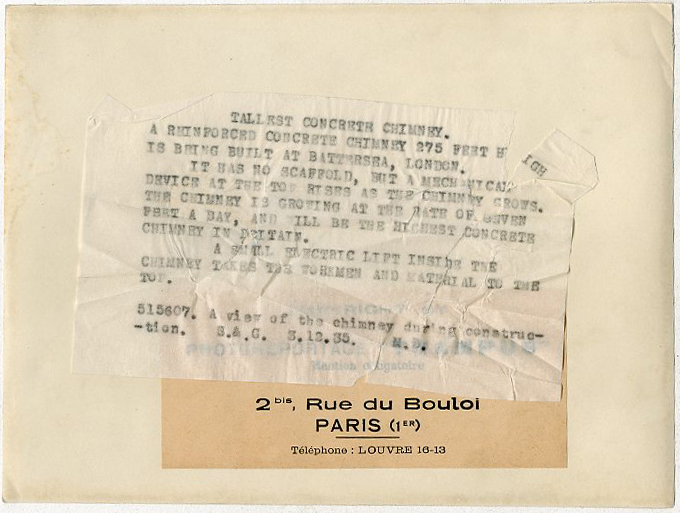 TALLEST CONCRETE CHIMNEY.
A REINFORCED CONCRETE CHIMNEY 275 FEET HIGH
IS BEING BUILT AT BATTERSEA, LONDON.
IT HAS NO SCAFFOLD, BUT A MECHANICAL
DEVICE AT THE TOP RISES AS THE CHIMNEY GROWS.
THE CHIMNEY IS GROWING AT THE RATE OF SEVEN
FEET A DAY, AND WILL BE THE HIGHEST CONCRETE
CHIMNEY IN BRITAIN.
A SMALL ELECTRIC LIFT INSIDE THE
CHIMNEY TAKES THE WORKMEN AND MATERIAL TO THE
TOP.
515607. A view of the chimney during construc-
-tion. S.&.G. 3.12.35. M.D.
COPYRIGHT BY
PHOTOREPORTAGE "TRAMPUS"
Mention obligatoire
2 bis, Rue du Bouloi
PARIS (1ER)
Téléphone : LOUVRE 16-13